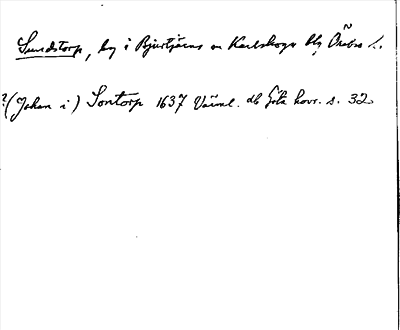 Sundstorp, by i Bjurtjärns sn Karlskoga bg Örebro l.
?(Johan i) Sontorp 1637 Värml. db Göta hovr. s. 32